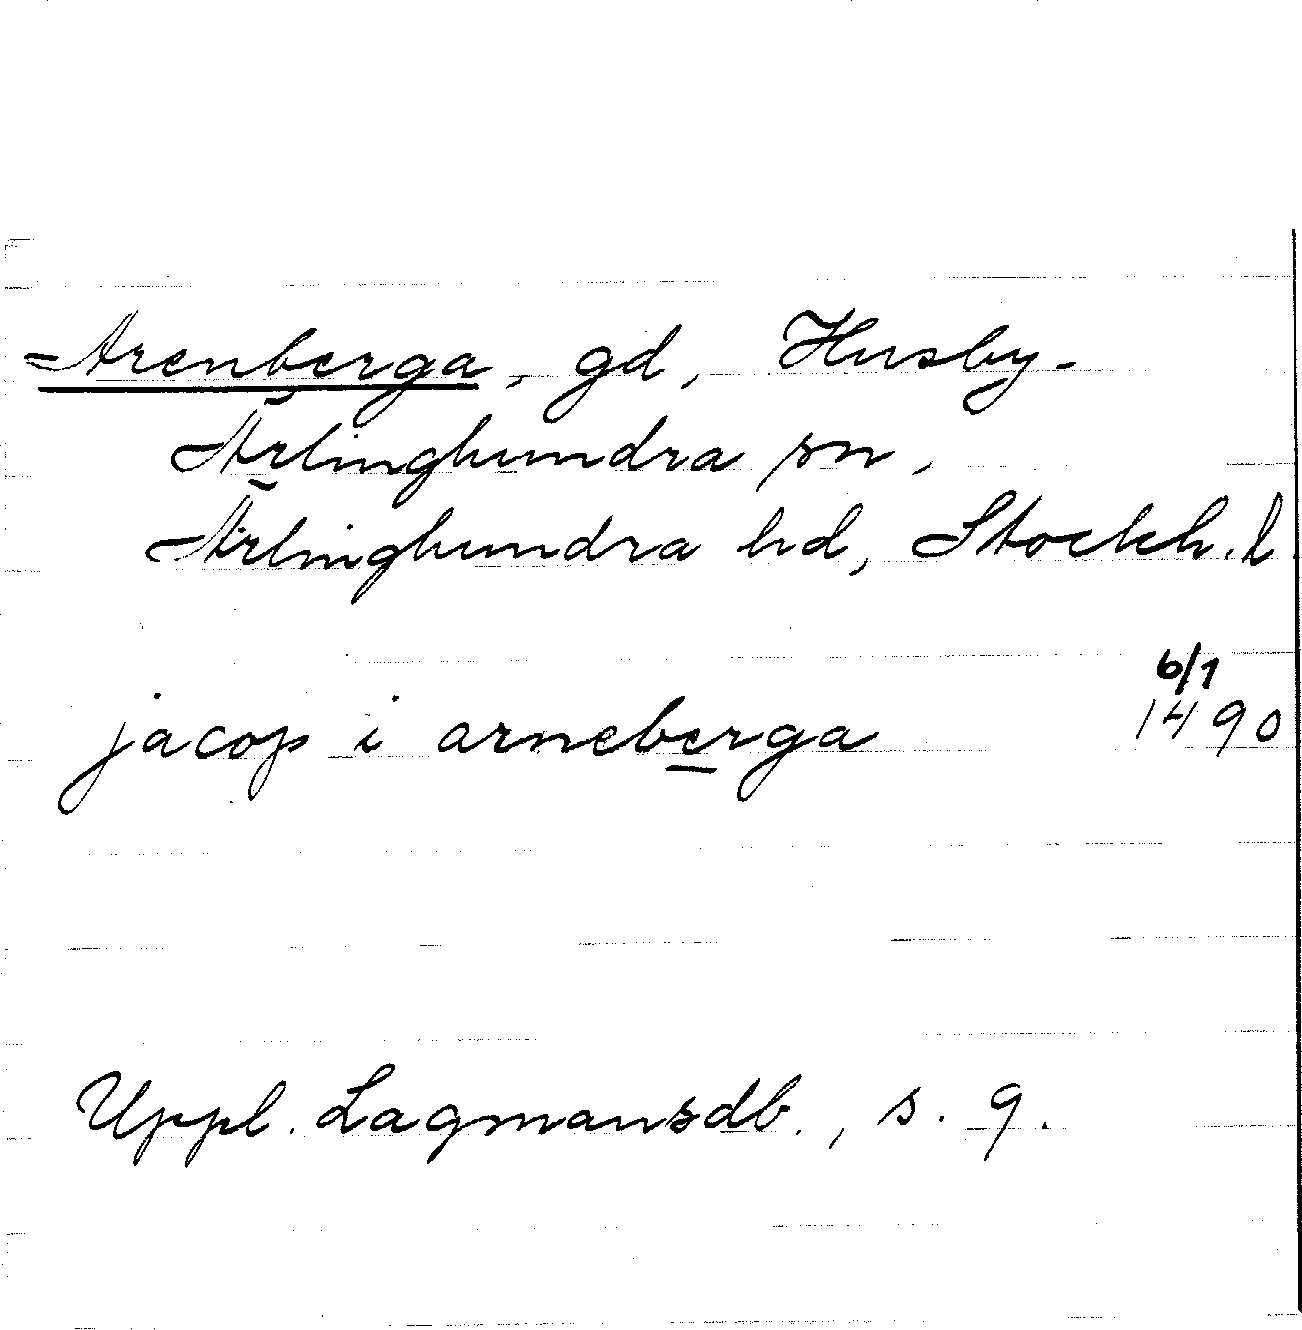 Arenberga, gd, Husby-
Ärlinghundra sn,
Ärlinghundra hd, Stockh. l.
6/1
jacop i arneberga 1490
Uppl. Lagmansdb., s. 9.